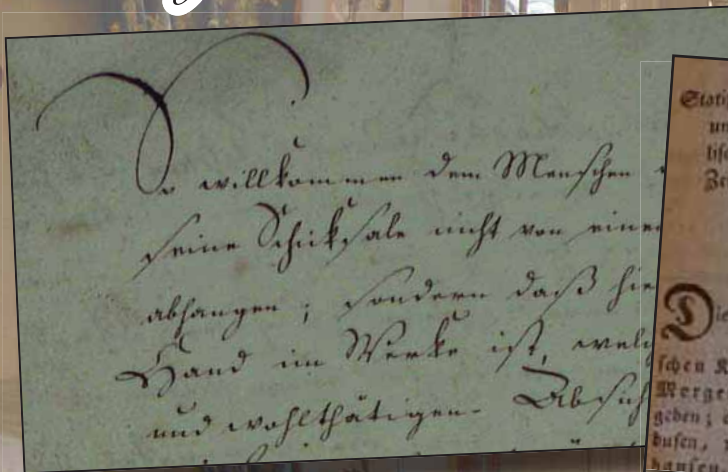 So willkommen dem Menschen
seine Schicksale nicht von einer
abhangen; sondern daß hie
Hand im Werke ist, welc
und wohlthätigen Absich
Stati
un
lisc
Ze
Die
schen K
Merge
geben;
busen,
hausen